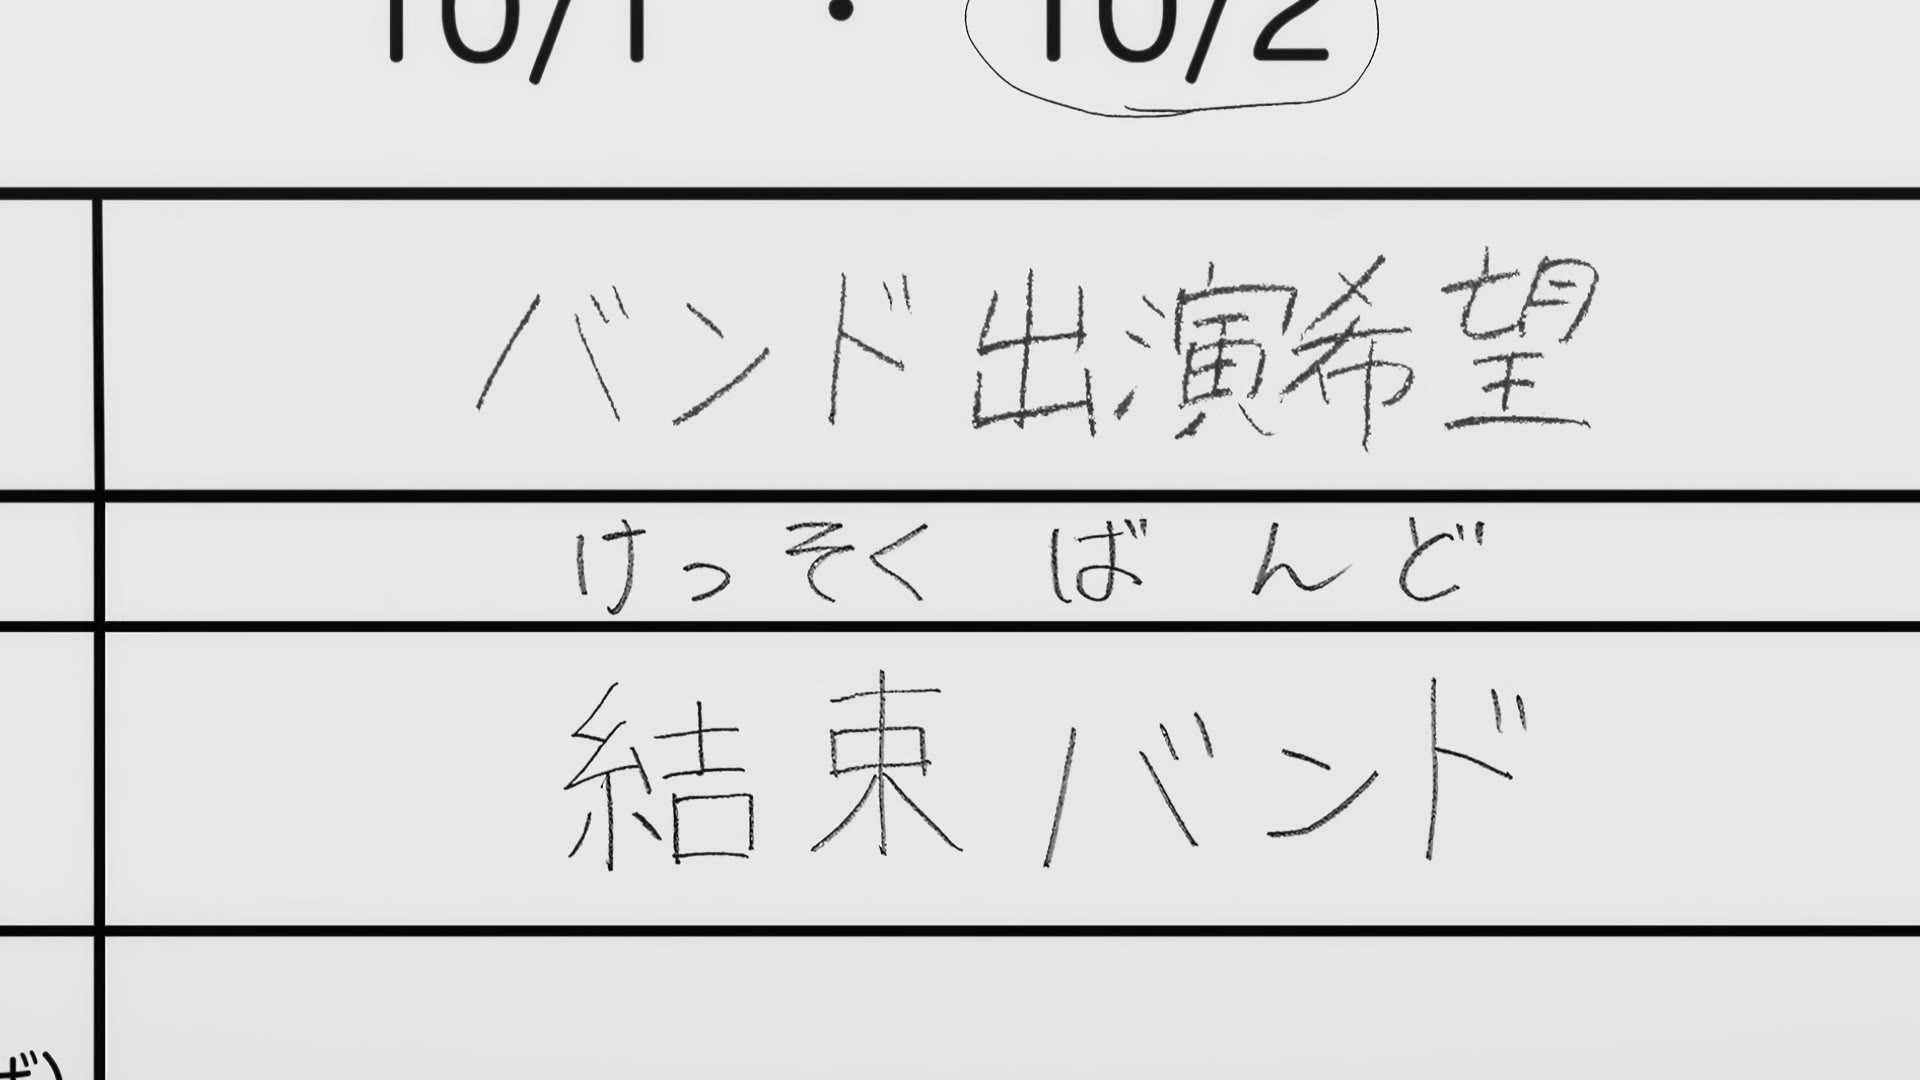 10/1 ・ 10/2
バンド出演希望
けっそくばんど
結束バンド